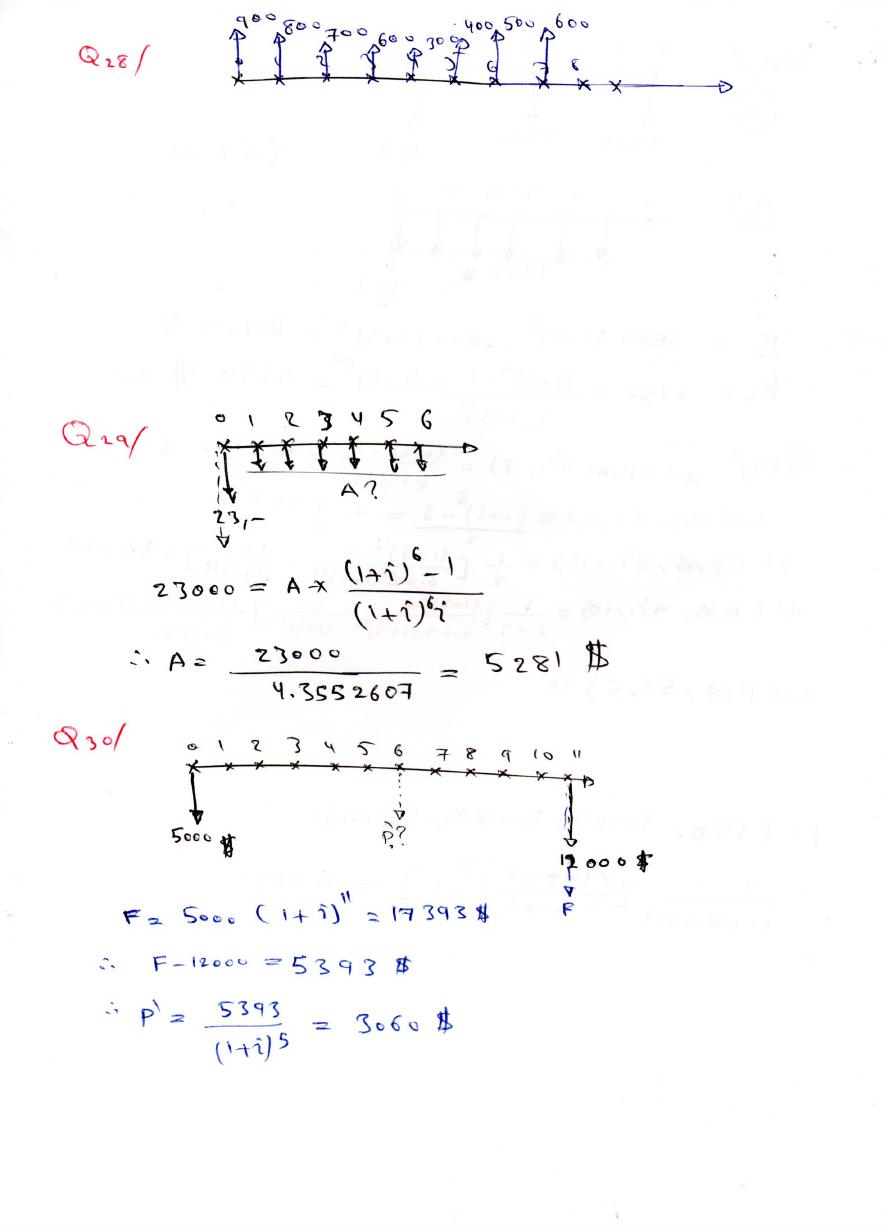 Q28/
900 800 700 600 300 400 500 600
0 1 2 3 4 5 6 7 8
Q29/
0 1 2 3 4 5 6
A?
23,-
23000 = A x (1+i)^6 - 1 / (1+i)^6 i
∴ A = 23000 / 4.3552607 = 5281 $
Q30/
0 1 2 3 4 5 6 7 8 9 10 11
5000 $ P'? 12000 $
F
F = 5000 (1+i)^11 = 17393 $
∴ F - 12000 = 5393 $
∴ P' = 5393 / (1+i)^5 = 3060 $